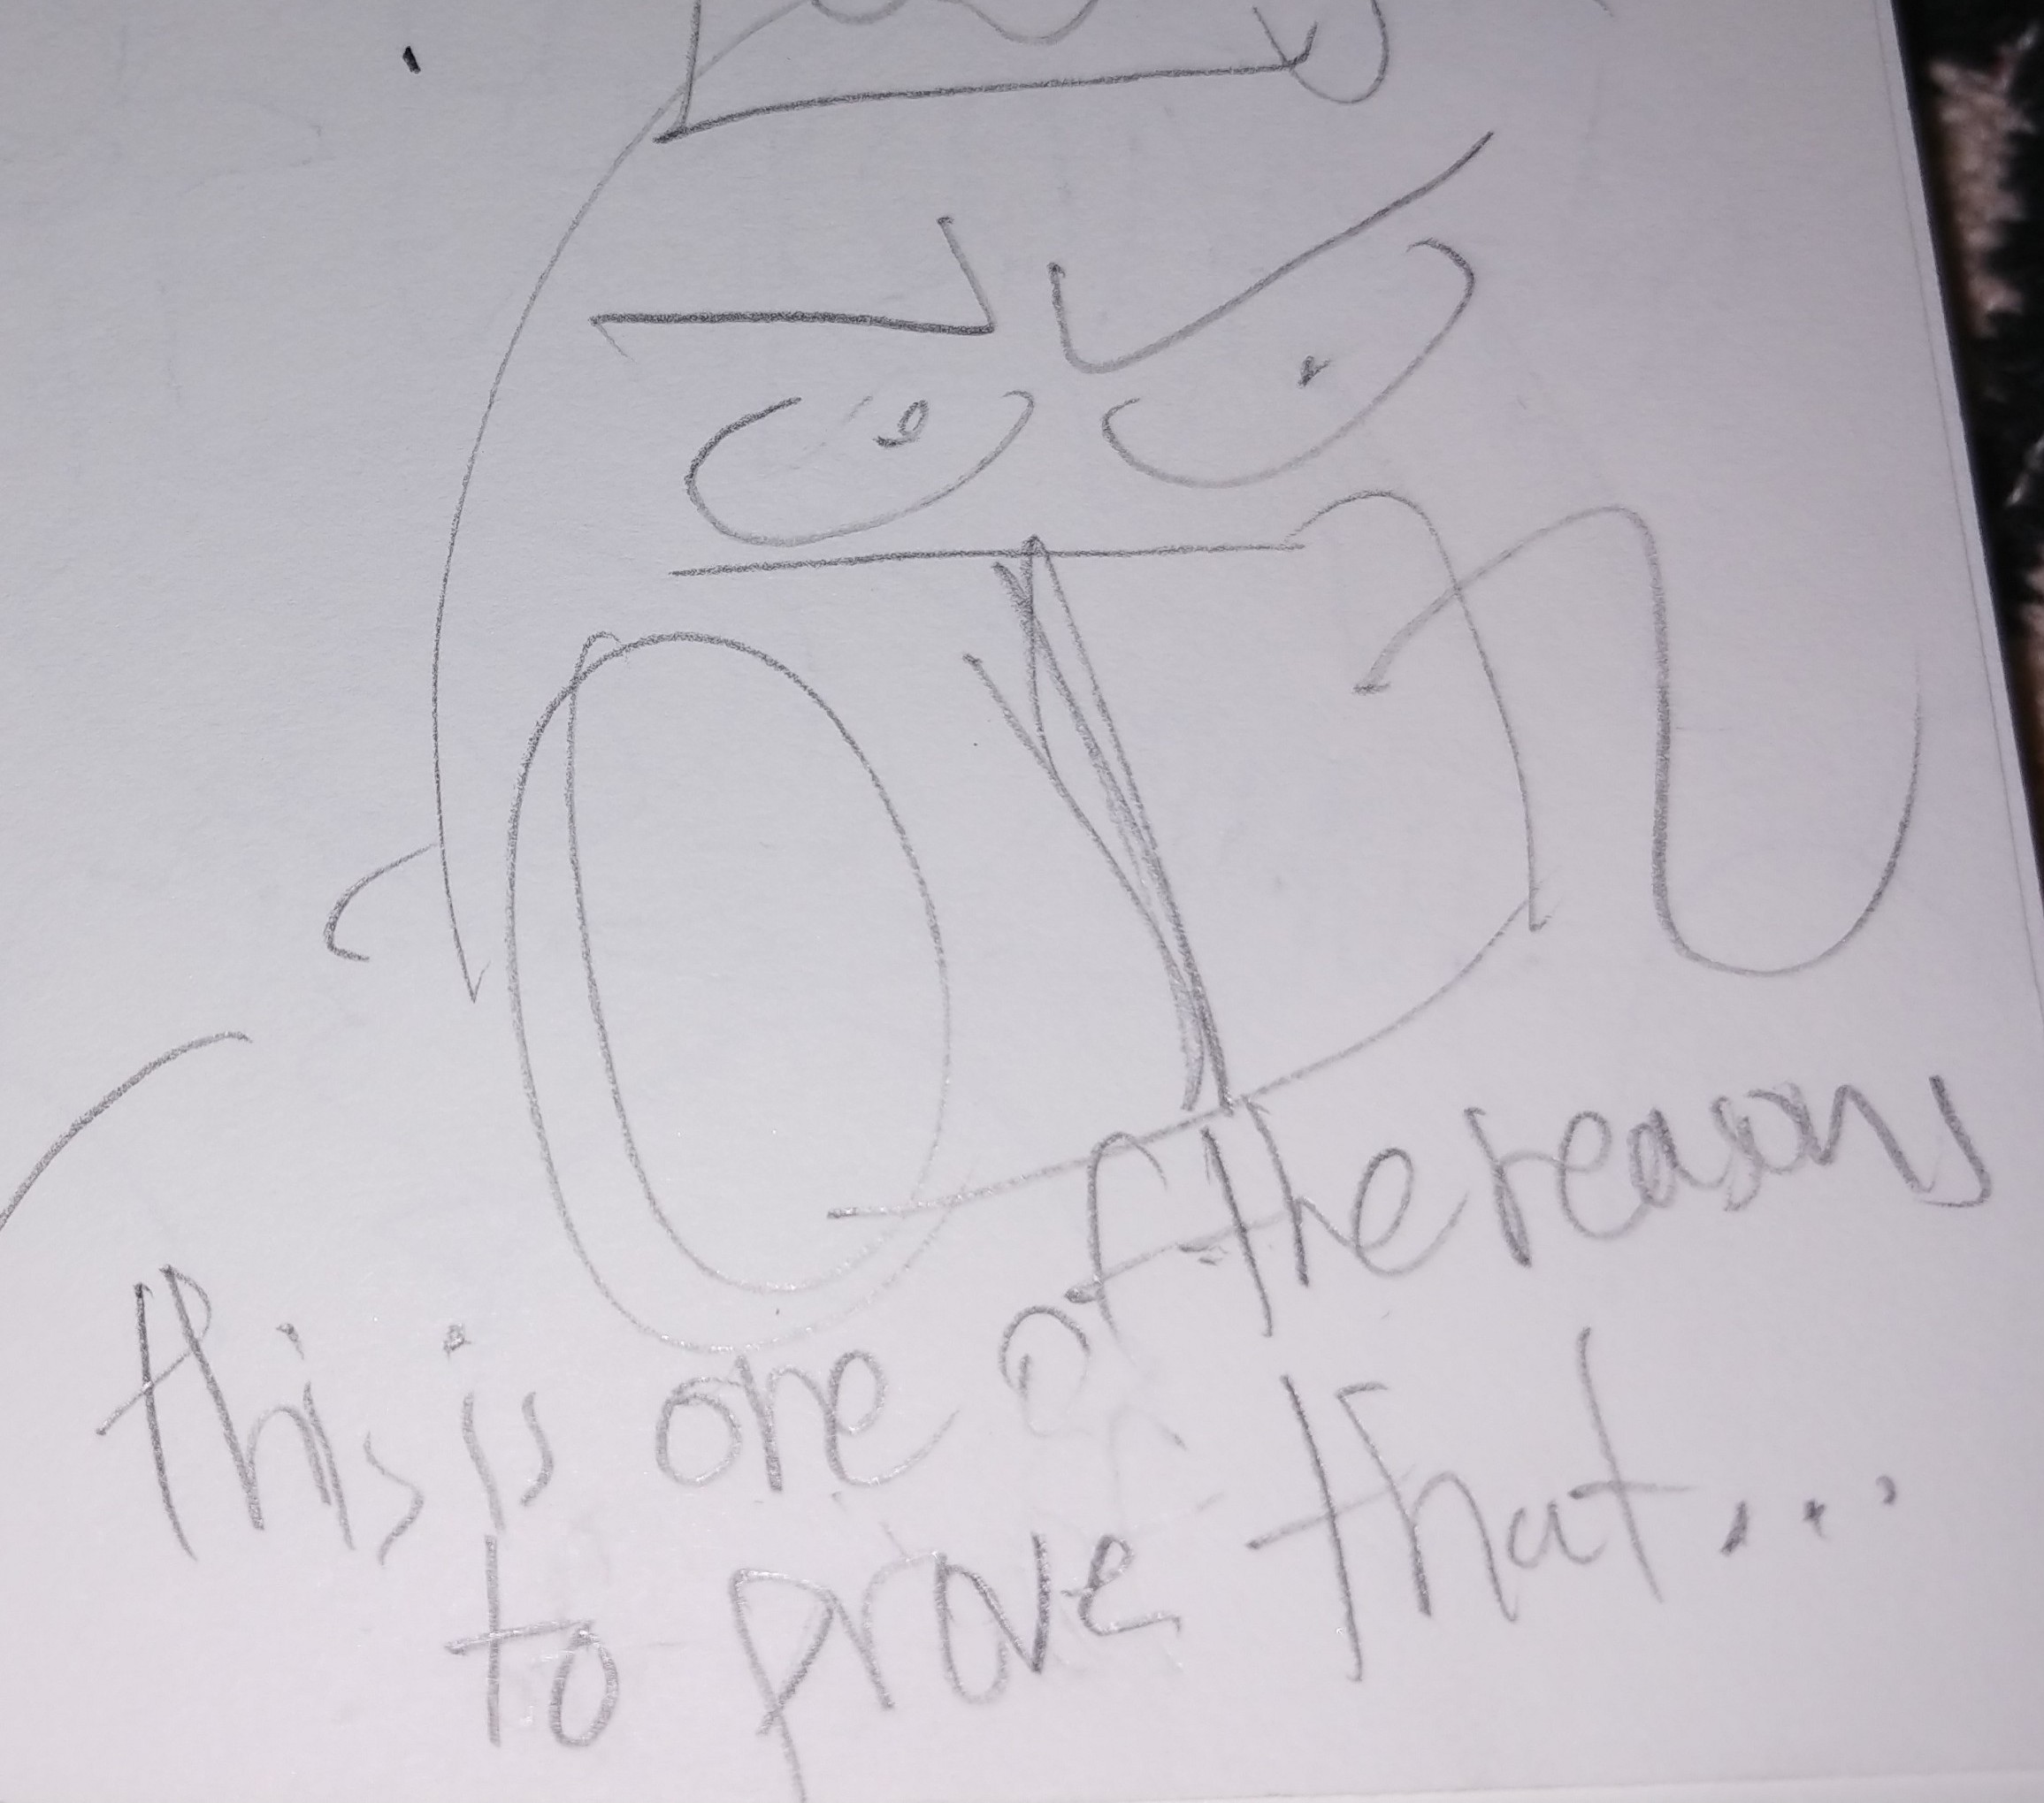 this is one of the reasons
to prove that...